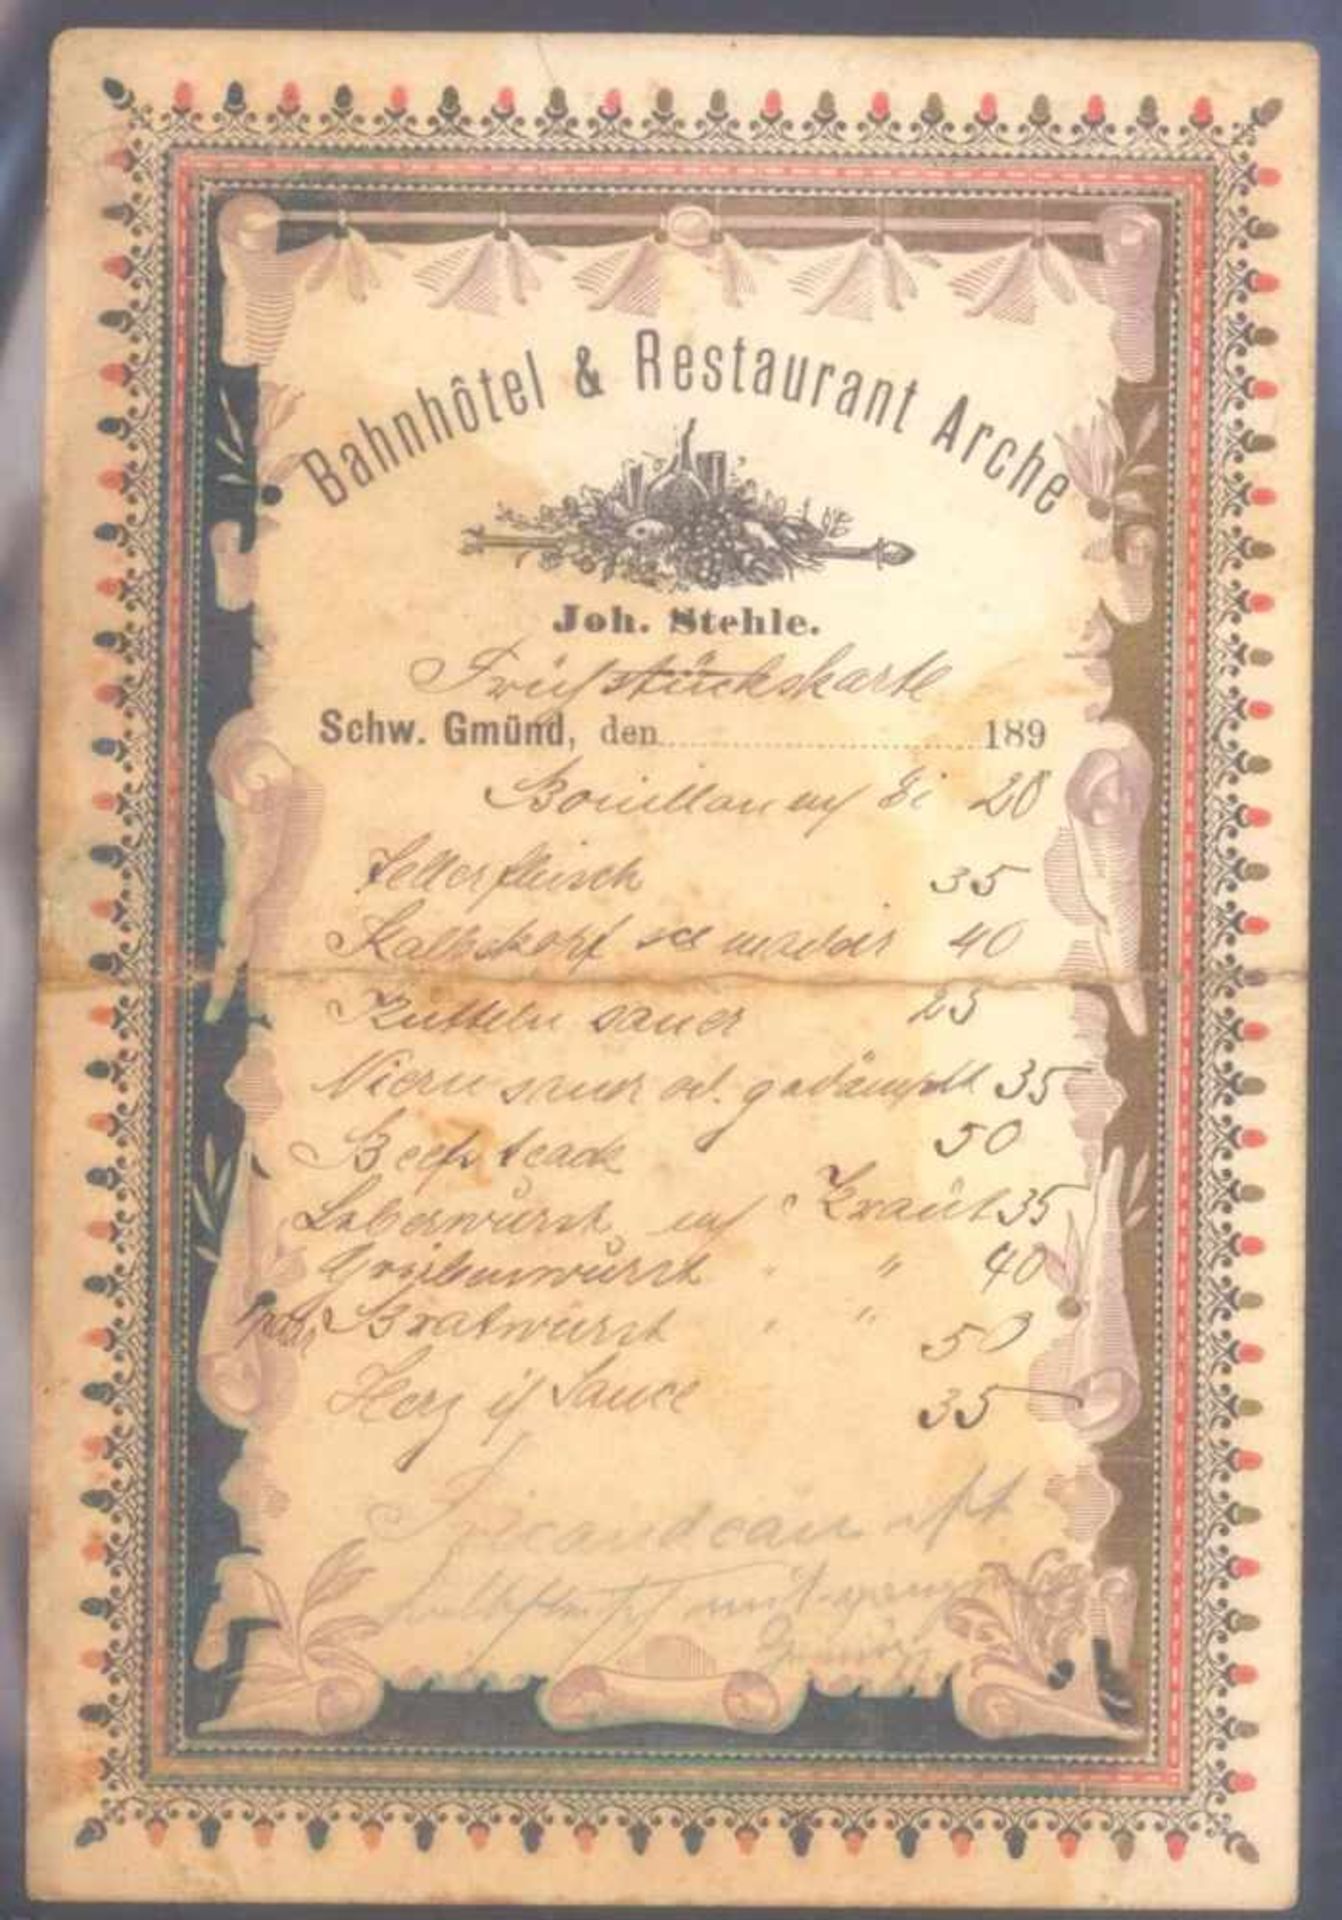 Bahnhôtel & Restaurant Arche
Joh. Stehle.
Frühstückskarte
Schw. Gmünd, den 189
Bouillon m/ Ei 20
Tellerfleisch 35
Kalbskopf 40
Kutteln sauer 25
Niern sauer od. gedämpft 35
Beefsteack 50
Leberwurst m/ Kraut 35
Griebenwurst " " 40
Bratwurst " " 50
Herz i/ Sauce 35
Fricandeau
mit